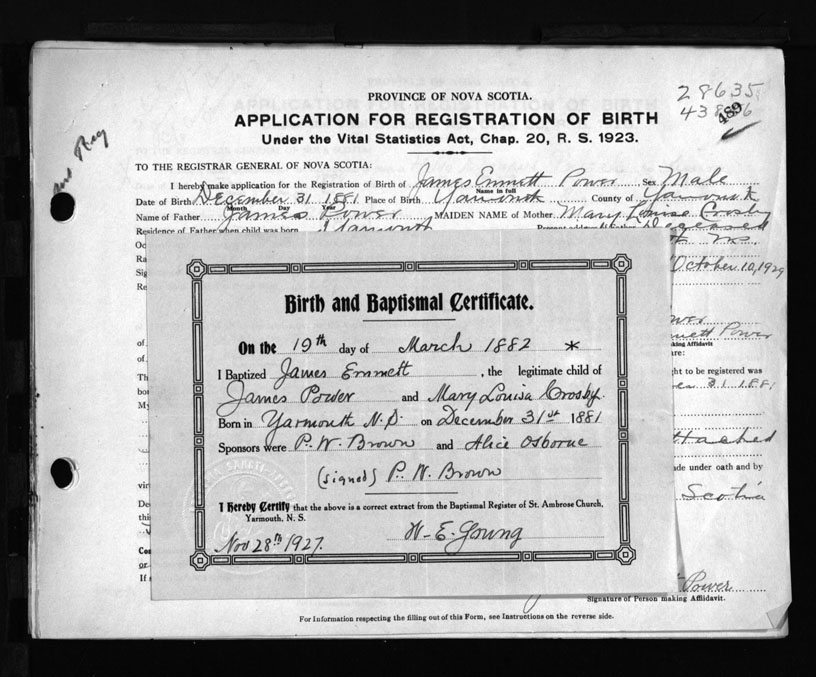 PROVINCE OF NOVA SCOTIA.
28635
438 6
489
APPLICATION FOR REGISTRATION OF BIRTH
Under the Vital Statistics Act, Chap. 20, R. S. 1923.
Reg
TO THE REGISTRAR GENERAL OF NOVA SCOTIA:
I hereby make application for the Registration of Birth of James Emmett Power Sex Male
Name in full
Date of Birth December 31 1881 Place of Birth Yarmouth County of Yarmouth
Month Day Year
Name of Father James Power MAIDEN NAME of Mother Mary Louise Crosby
Residence of Father when child was born Yarmouth Present address of Father Deceased
Oc
Ra
Sig
Re
October 10, 1929
Power
mmett Power
king Affidavit
of
of
are:
Th
ht to be registered was
bor
31 1881
My
ttached
ade under oath and by
virt
Scotia
De
this
Cor
or
If
Power
Signature of Person making Affidavit.
For Information respecting the filling out of this Form, see Instructions on the reverse side.
Birth and Baptismal Certificate.
On the 19th day of March 1882 *
I Baptized James Emmett, the legitimate child of
James Power and Mary Louisa Crosby.
Born in Yarmouth N.S. on December 31st 1881
Sponsors were P. W. Brown and Alice Osborne
(signed) P. W. Brown
I Hereby Certify that the above is a correct extract from the Baptismal Register of St. Ambrose Church,
Yarmouth, N. S.
Nov 28th 1927. W. E. Young